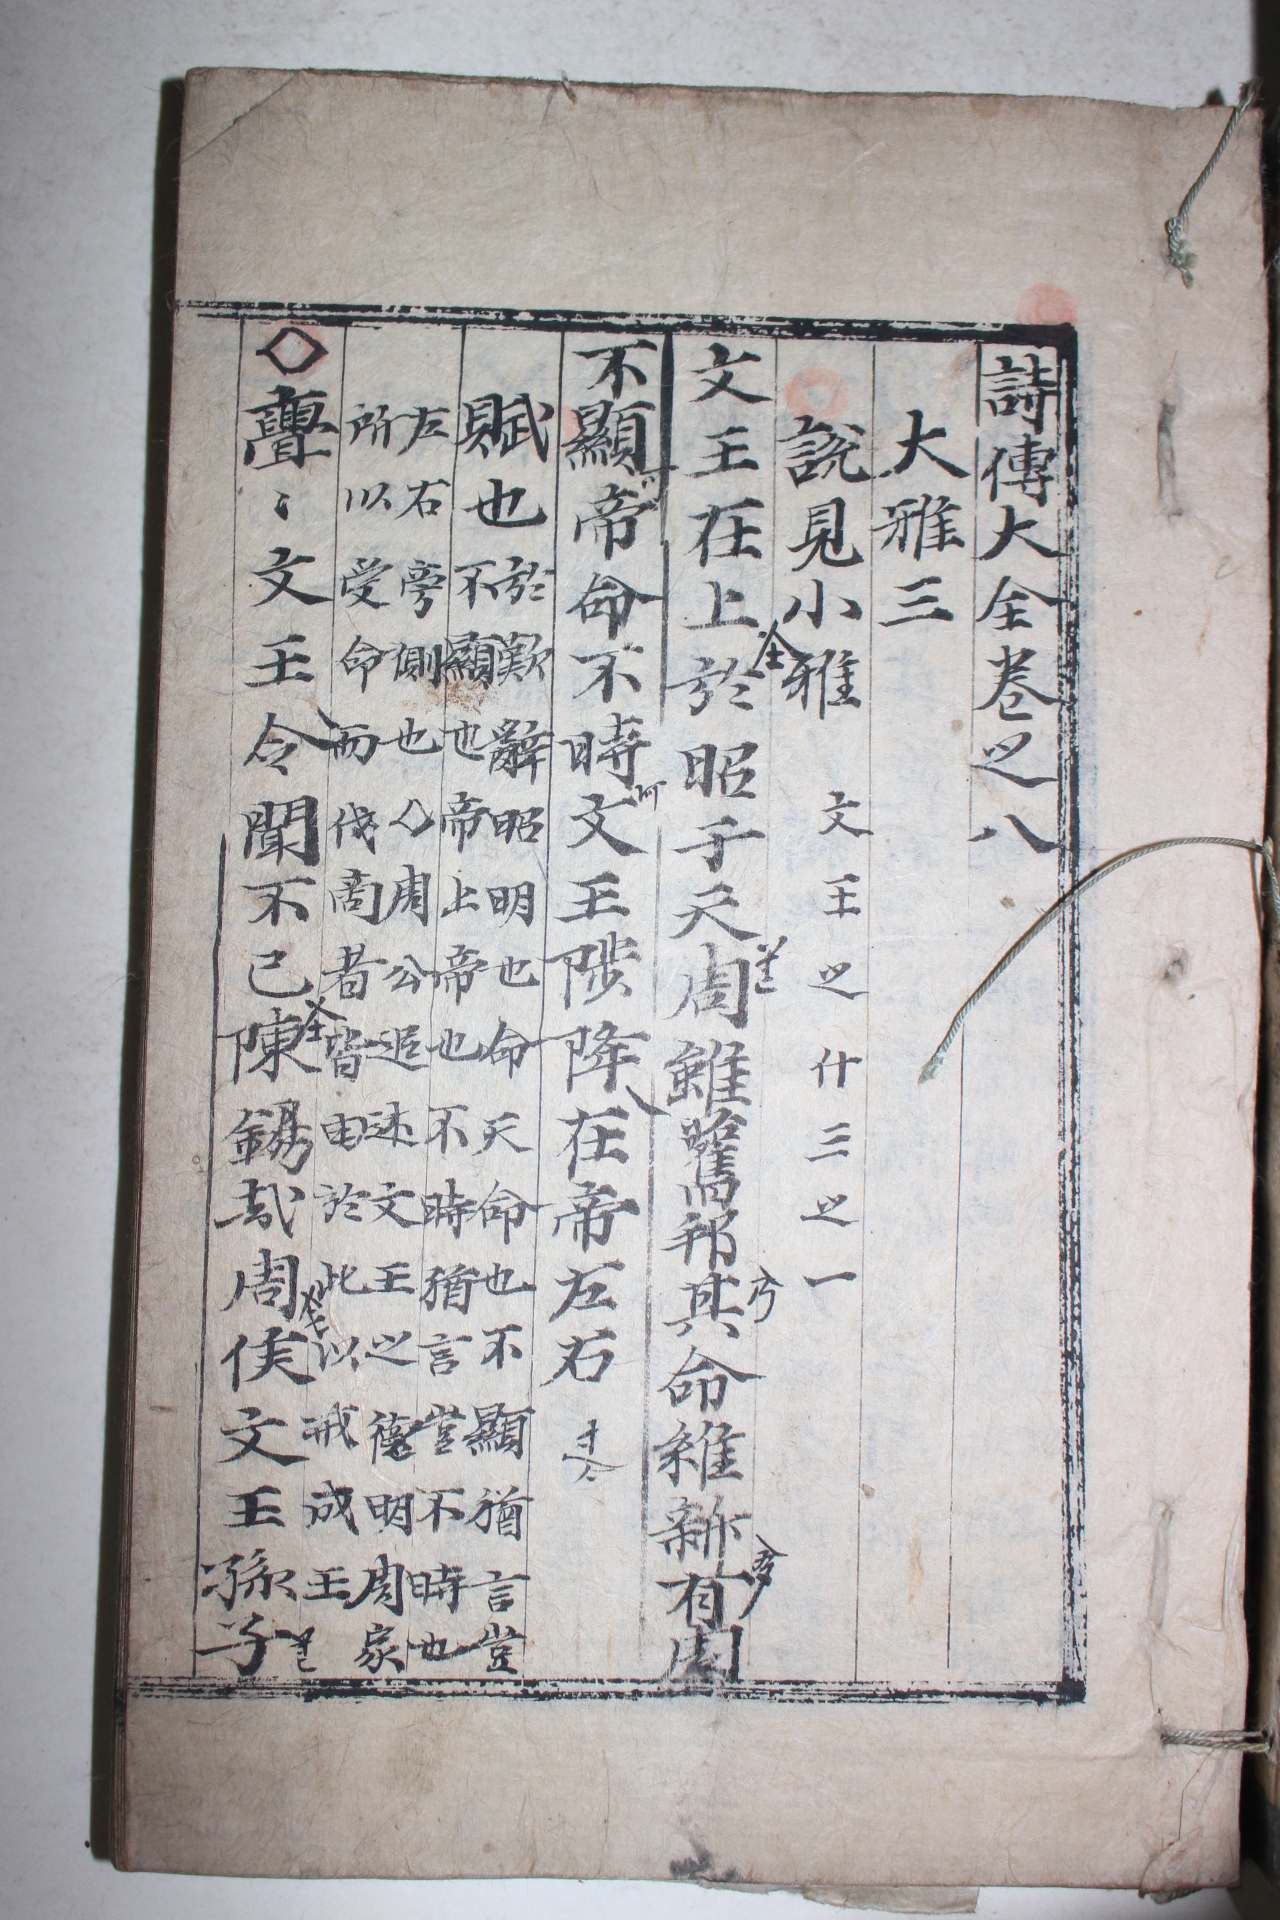 詩傳大全卷之八
大雅三
說見小雅
文王之什三之一
文王在上於昭于天周雖舊邦其命維新有周
不顯帝命不時文王陟降在帝左右
賦也
於歎辭昭明也命天命也不顯猶言豈
不顯也帝上帝也不時猶言豈不時也
左右旁側也〇周公追述文王之德明周家
所以受命而伐商者皆由於此以戒成王
亹〻文王令聞不已陳錫哉周侯文王孫子